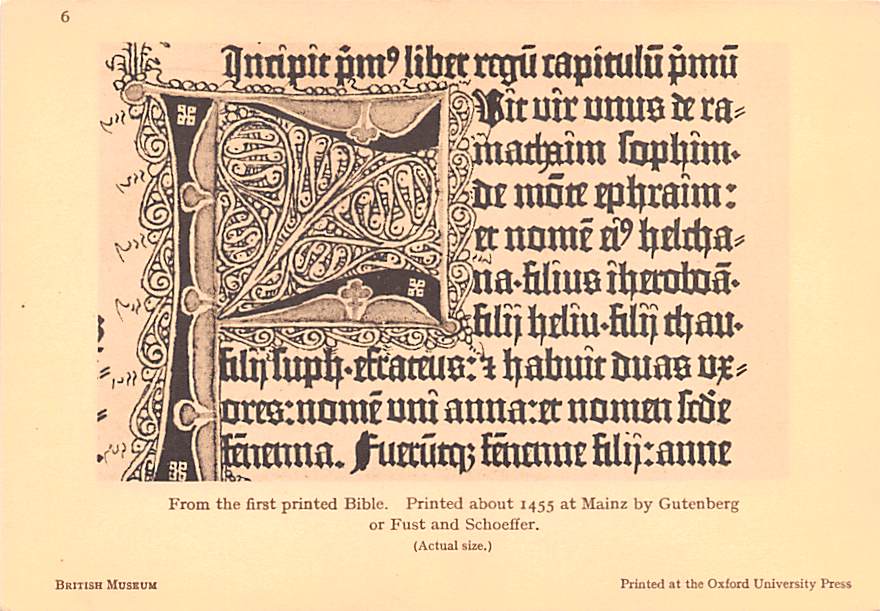 6
Incipit p̄m⁹ liber regū capitulū p̄mū
Vit vir unus de ra⸗
mathaim sophim·
de mōte ephraim:
et nomē ei⁹ helcha⸗
na·filius iheroboā·
filij heliu·filij thau·
filij suph·efrateus:⁊ habuit duas ux⸗
ores:nomē uni anna:et nomen scd̄e
fēnenna. Fuerūtq; fēnenne filij:anne
From the first printed Bible. Printed about 1455 at Mainz by Gutenberg
or Fust and Schoeffer.
(Actual size.)
BRITISH MUSEUM
Printed at the Oxford University Press